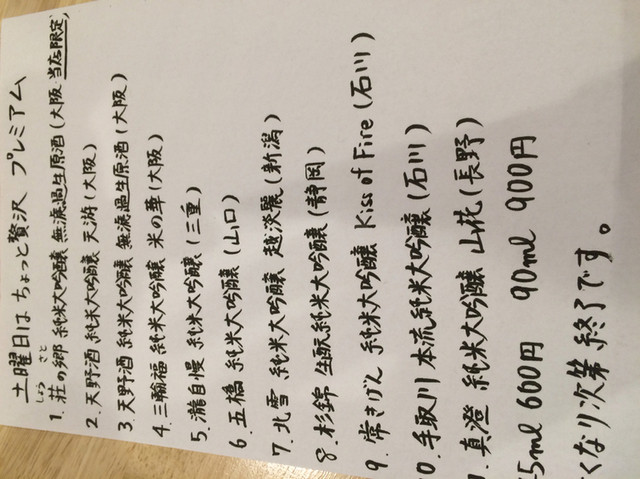 土曜日は ちょっと贅沢 プレミアム
しょう さと
1. 荘の郷 純米大吟醸 無濾過生原酒(大阪 当店限定)
2. 天野酒 純米大吟醸 天游(大阪)
3. 天野酒 純米大吟醸 無濾過生原酒(大阪)
4. 三輪福 純米大吟醸 米の華(大阪)
5. 瀧自慢 純米大吟醸(三重)
6. 五橋 純米大吟醸(山口)
7. 北雪 純米大吟醸 越淡麗(新潟)
8. 杉錦 生酛純米大吟醸(静岡)
9. 常きげん 純米大吟醸 Kiss of Fire(石川)
0. 手取川 本流純米大吟醸(石川)
. 真澄 純米大吟醸 山花(長野)
5ml 600円 90ml 900円
くなり次第 終了です。